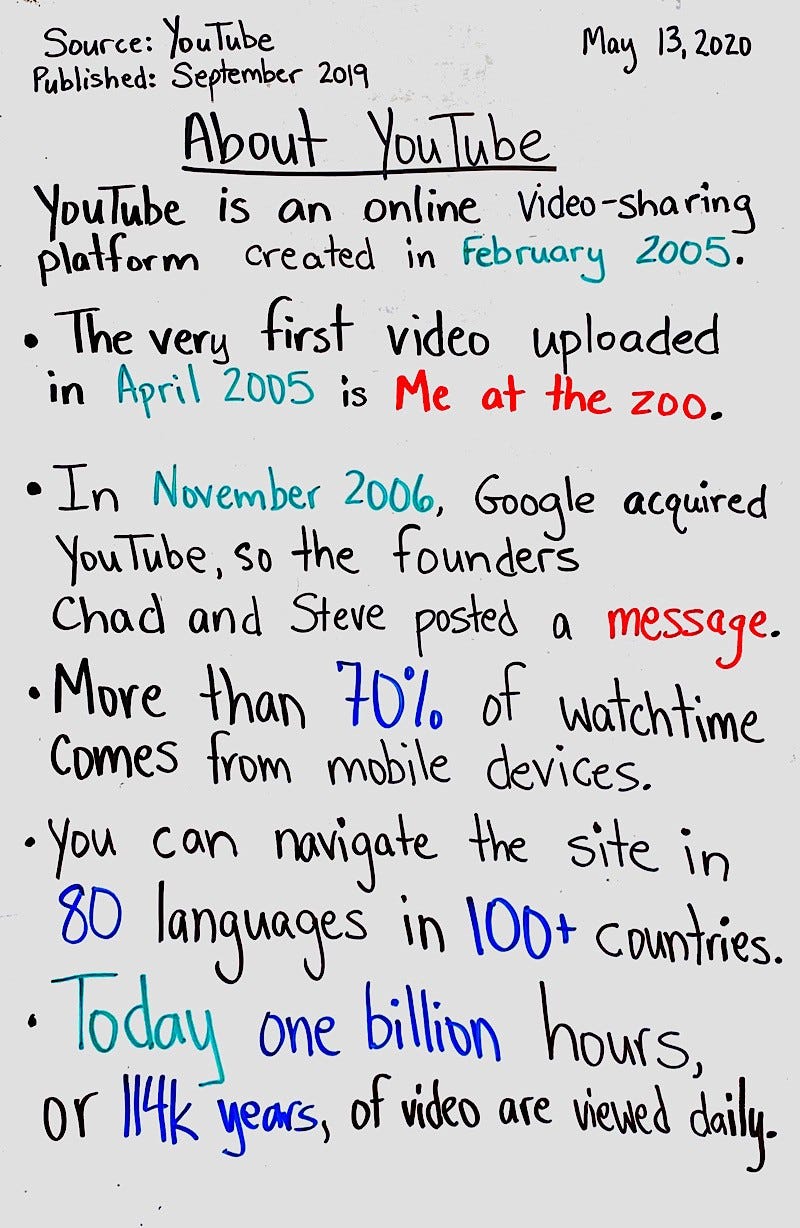 Source: YouTube
May 13, 2020
Published: September 2019
About YouTube
YouTube is an online video-sharing
platform created in February 2005.
• The very first video uploaded
in April 2005 is Me at the zoo.
• In November 2006, Google acquired
YouTube, so the founders
Chad and Steve posted a message.
• More than 70% of watchtime
comes from mobile devices.
• You can navigate the site in
80 languages in 100+ countries.
• Today one billion hours,
or 114k years, of video are viewed daily.